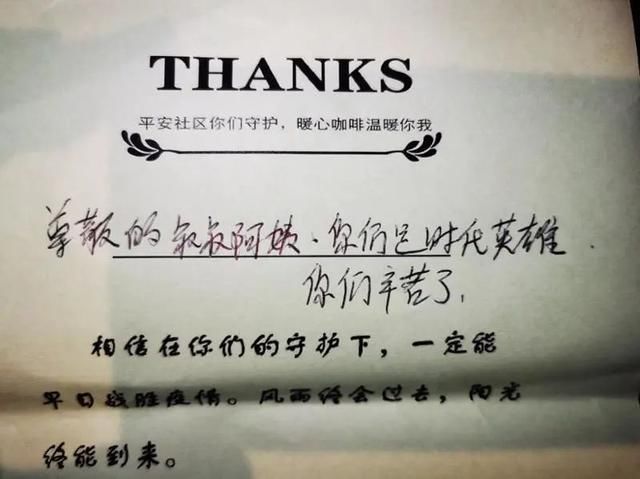 THANKS
平安社区你们守护，暖心咖啡温暖你我
尊敬的叔叔阿姨、你们是时代英雄.
你们辛苦了,
相信在你们的守护下，一定能
早日战胜疫情。风雨终会过去，阳光
终能到来。